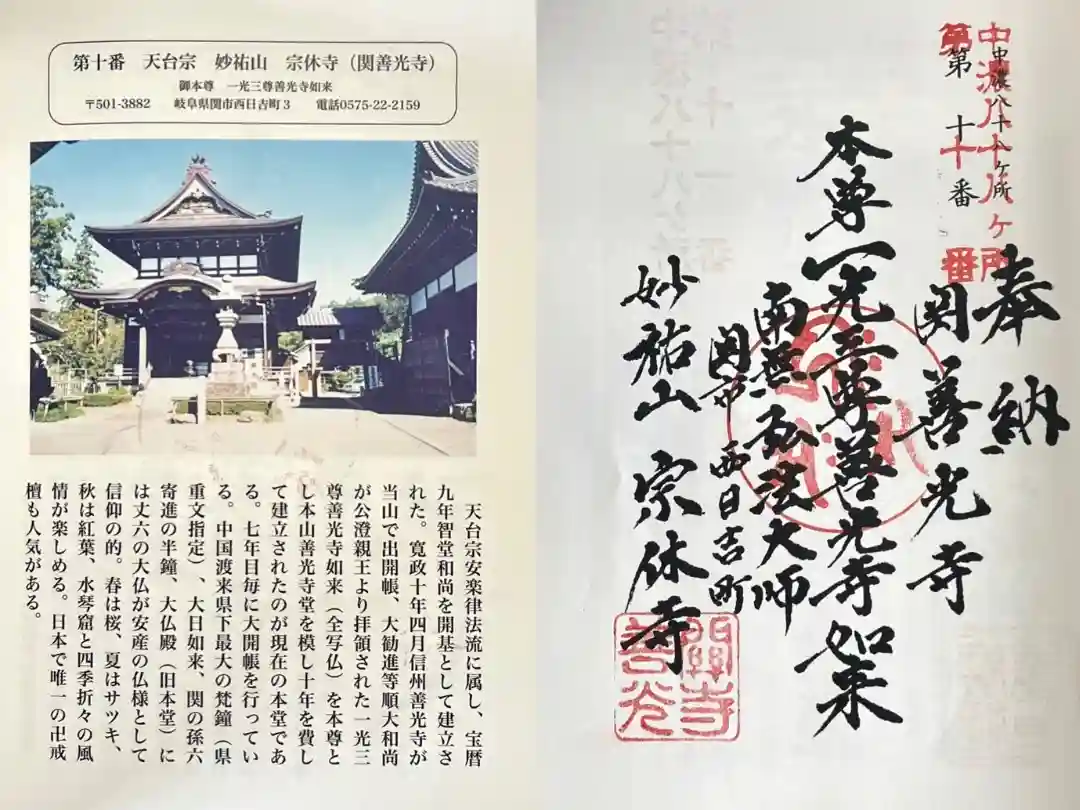 第十番　天台宗　妙祐山　宗休寺（関善光寺）
御本尊　一光三尊善光寺如来
〒501-3882　岐阜県関市西日吉町3　電話0575-22-2159
天台宗安楽律法流に属し、宝暦
九年智堂和尚を開基として建立さ
れた。寛政十年四月信州善光寺が
当山で出開帳、大勧進等順大和尚
が公澄親王より拝領された一光三
尊善光寺如来（全写仏）を本尊と
し本山善光寺堂を模し十年を費し
て建立されたのが現在の本堂であ
る。七年目毎に大開帳を行ってい
る。中国渡来県下最大の梵鐘（県
重文指定）、大日如来、関の孫六
寄進の半鐘、大仏殿（旧本堂）に
は丈六の大仏が安産の仏様として
信仰の的。春は桜、夏はサツキ、
秋は紅葉、水琴窟と四季折々の風
情が楽しめる。日本で唯一の卍戒
壇も人気がある。
中濃八十八ケ所
第十番
中濃八十八ヶ所
第十番
奉納
関善光寺
本尊一光三尊善光寺如来
南無弘法大師
関市西日吉町
妙祐山宗休寺
關寺
善光